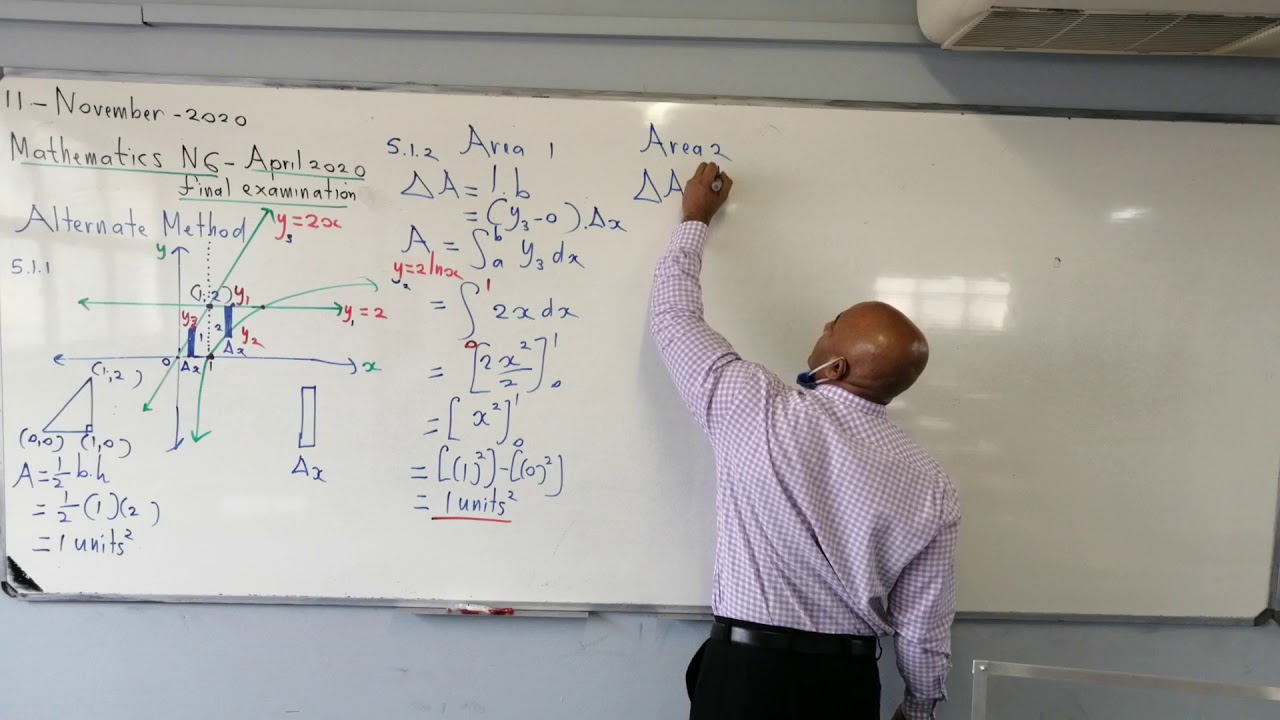 11 - November - 2020
Mathematics N6 - April 2020
final examination
Alternate Method
5.1.1
y
y₃ = 2x
(1;2)
y₁
y₁ = 2
y₃
1
2
y₂
Δx
0
Δx
1
x
(1,2)
(0,0) (1,0)
A = ½ b.h
= ½ (1)(2)
= 1 units²
Δx
5.1.2 Area 1
ΔA = l.b
= (y₃ - 0).Δx
A₁ = ∫ₐᵇ y₃ dx
y₂ = 2lnx
= ∫₀¹ 2x dx
= [2x²/2]¹₀
= [x²]¹₀
= [(1)²] - [(0)²]
= 1 units²
Area 2
ΔA